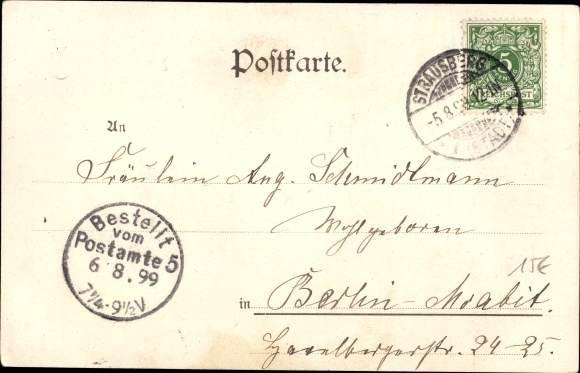 Postkarte.
5
REICHSPOST
STRAUSBERG
-5.8.99
(STADT)
An
Fräulein Aug. Schmidtmann
Wohlgeboren
Bestellt
vom
Postamte 5
6 8.99
7¼-9½V
15E
in Berlin-Moabit.
Havelbergerstr. 24-25.